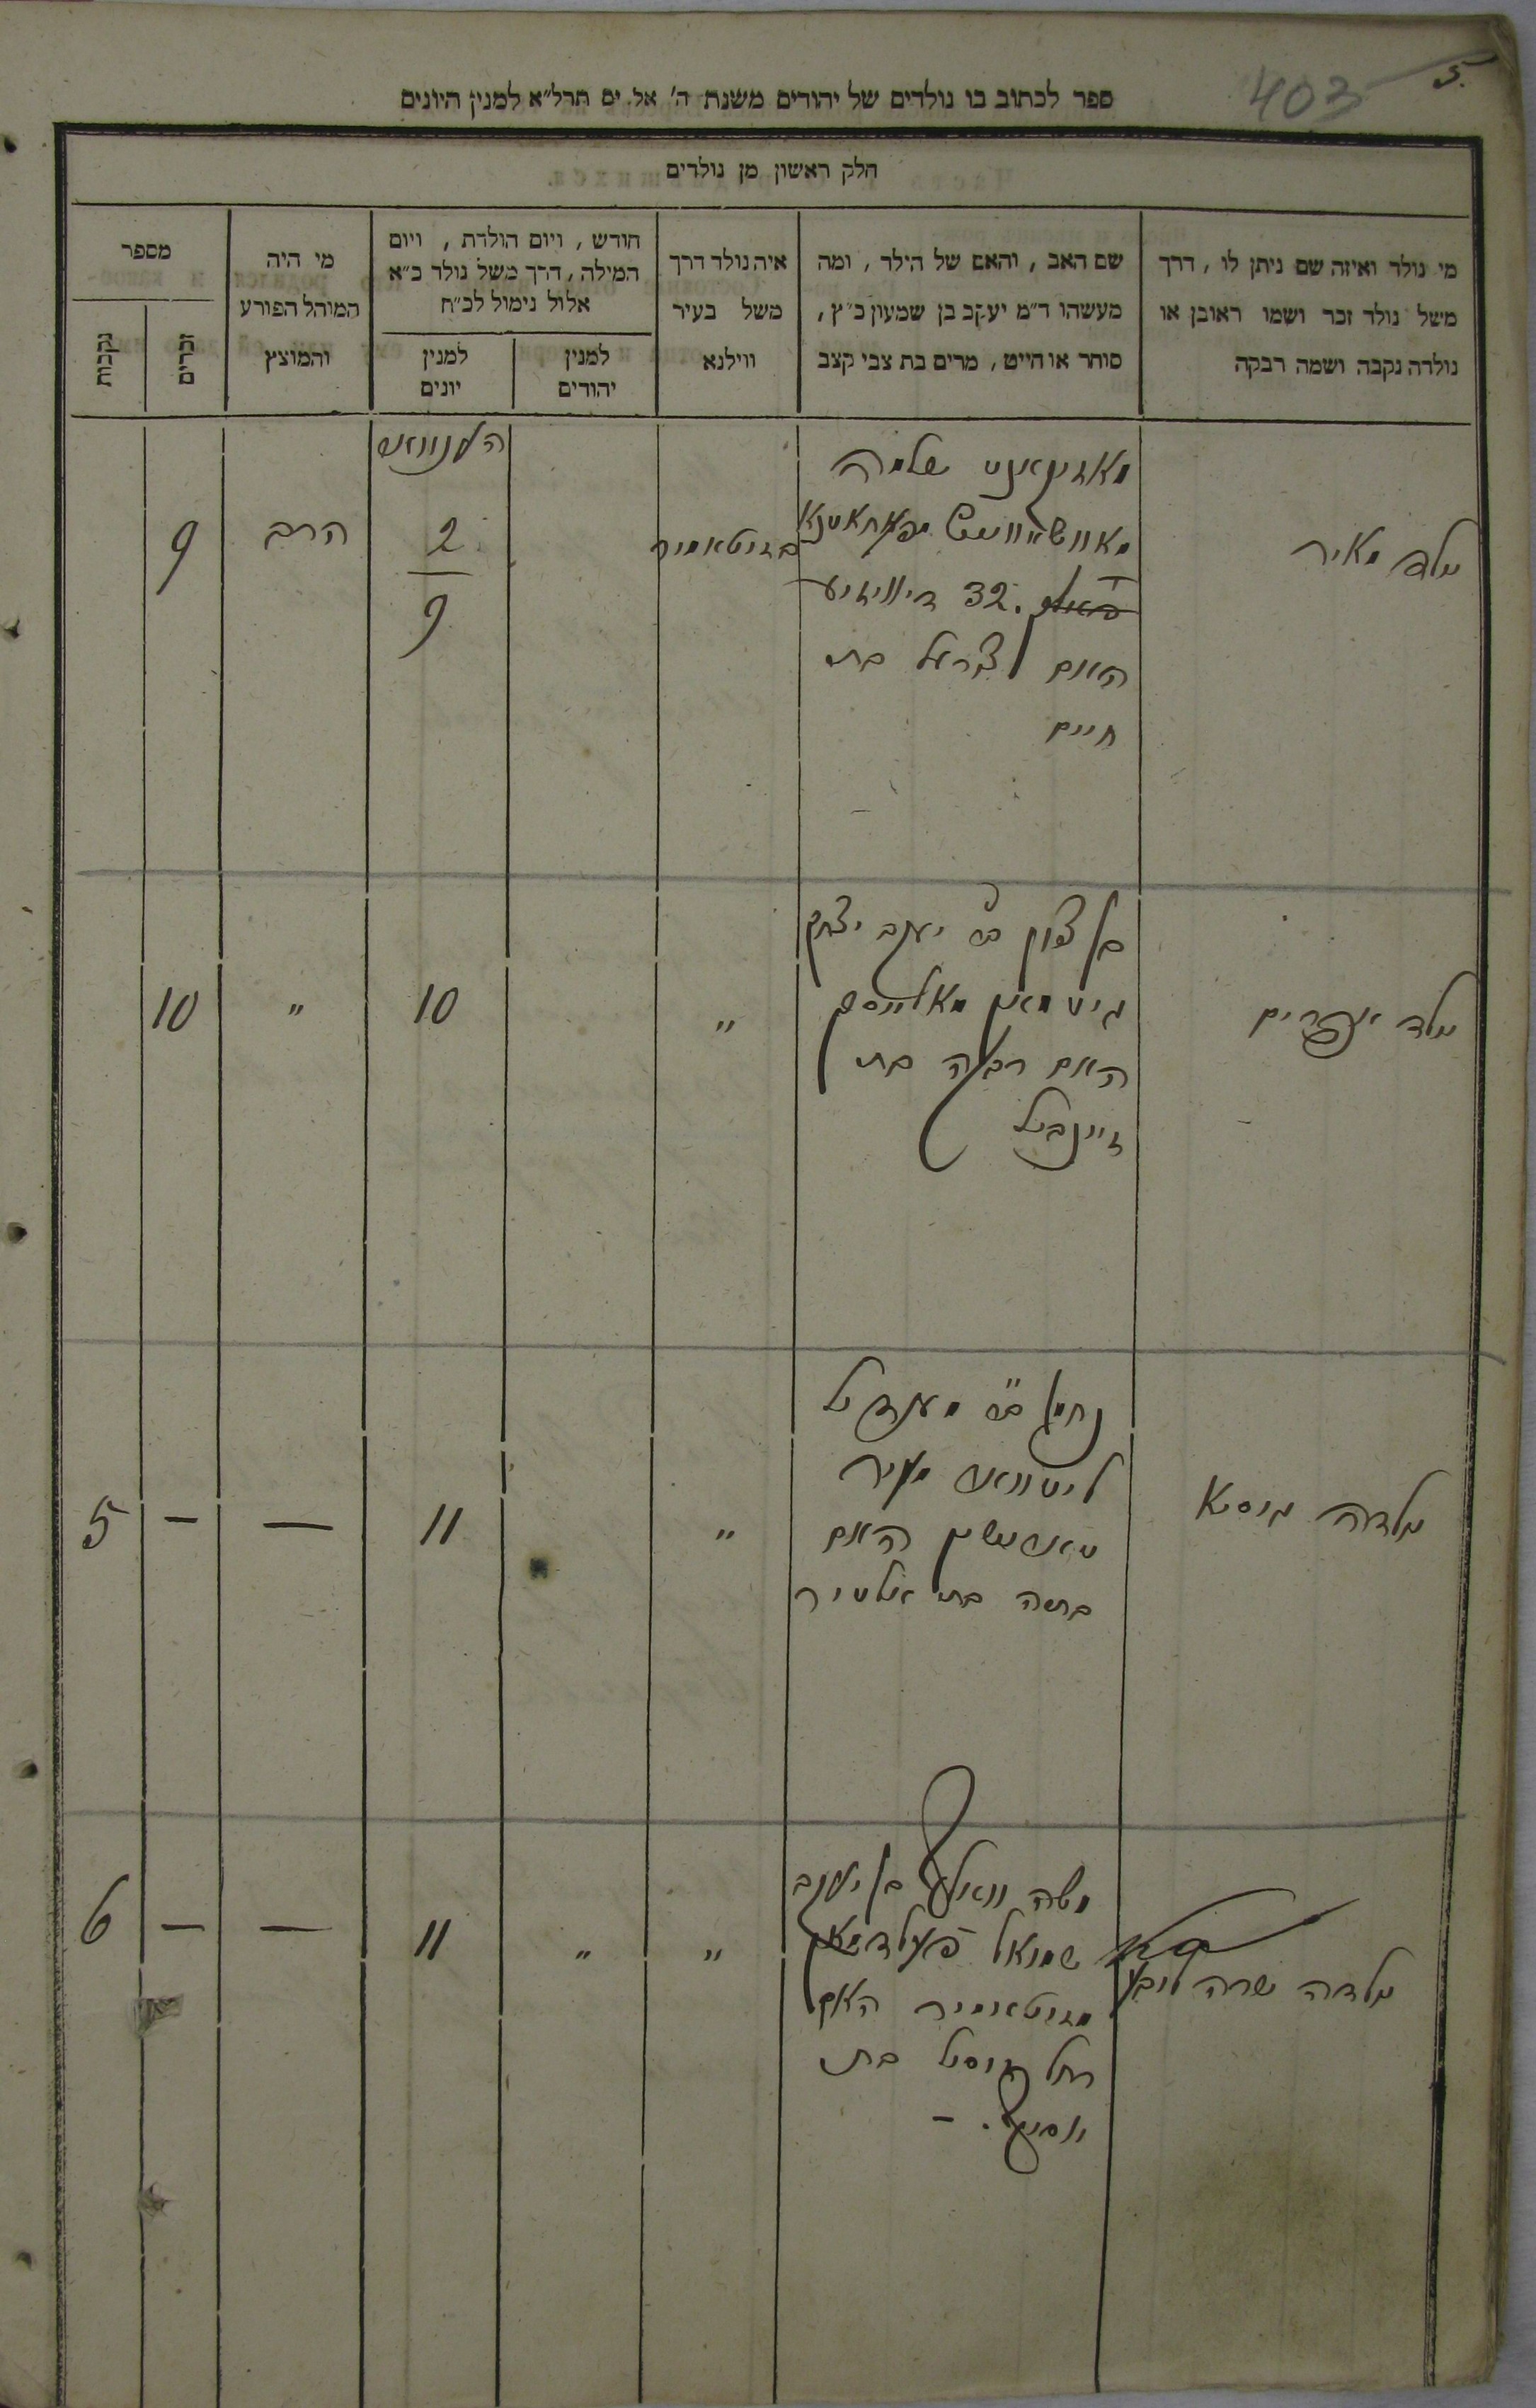 5.
403
ספר לכתוב בו נולדים של יהודים משנת ה' אל. ים תרל״א למנין היונים
חלק ראשון מן נולדים
מי נולד ואיזה שם ניתן לו, דרך
משל נולד זכר ושמו ראובן או
נולדה נקבה ושמה רבקה
שם האב, והאם של הילד, ומה
מעשהו ד״מ יעקב בן שמעון כ״ץ,
סוחר או חייט, מרים בת צבי קצב
איה נולד דרך
משל בעיר
ווילנא
חודש, ויום הולדת, ויום
המילה, דרך משל נולד כ״א
אלול נימול לכ״ח
למנין
יהודים
למנין
יונים
מי היה
המוהל הפורע
והמוצץ
מספר
זכרים
נקבות
נולד מאיר
שלמה
32. דיוויזיע
האם בת
חיים
בזיטאמיר
2
9
הרב
9
נולד אפרים
בן ציון ב״ר יעקב יצחק
האם רבקה בת
זיינביל
"
10
"
10
נולדה גיסיא
נחמן ב״ר מענדיל
ליטוואק מעיר
האם
בת
"
11
—
—
5
נולדה שרה ליבא
משה וואלף בן יעקב
שמואל פעלדמאן
מזיטאמיר האם
רחל בת
יוסף. –
"
"
11
—
—
6